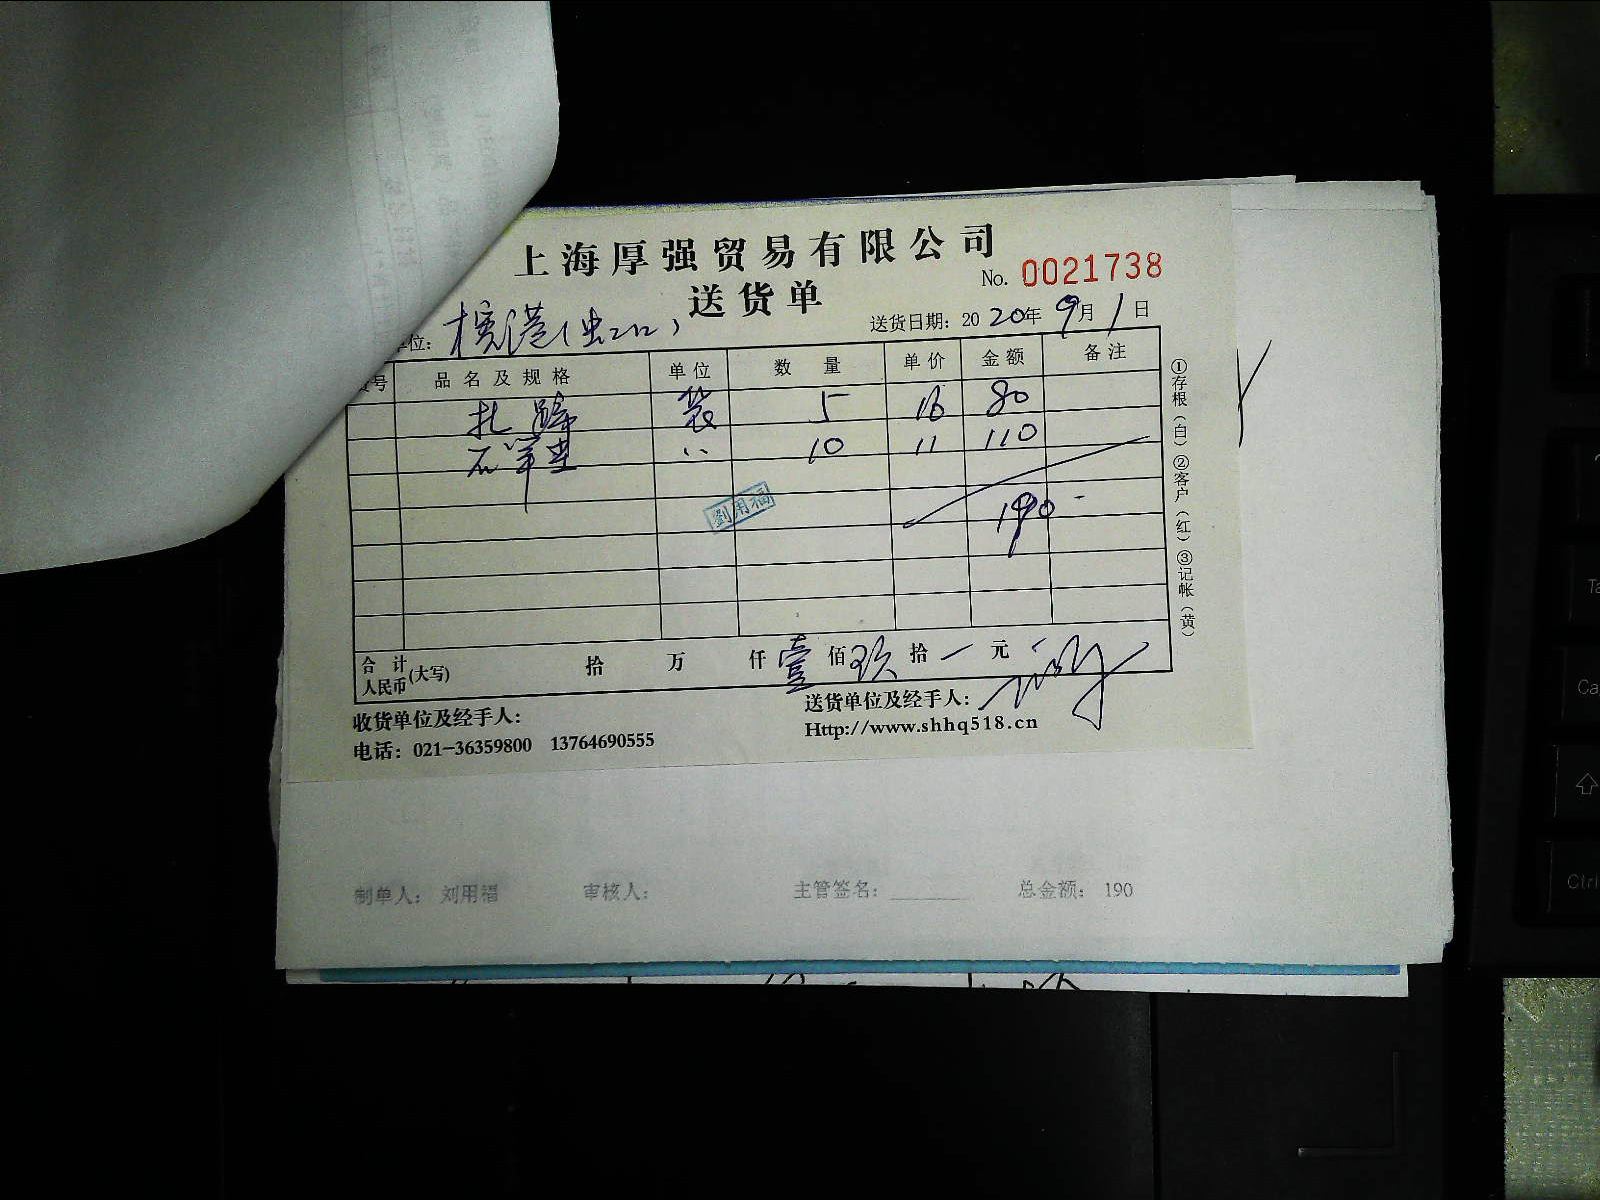 上海厚强贸易有限公司
No. 0021738
送货单
送货日期: 2020年9月1日
位:
号 品名及规格 单位 数量 单价 金额 备注
扎 袋 5 16 80
石笔 〃 10 11 110
劉用福
190
合计人民币(大写) 拾 万 仟 壹 佰 玖 拾 一 元
收货单位及经手人:
送货单位及经手人:
电话: 021-36359800 13764690555
Http://www.shhq518.cn
①存根(白)②客户(红)③记帐(黄)
制单人: 刘用福 审核人: 主管签名: 总金额: 190
Ctrl